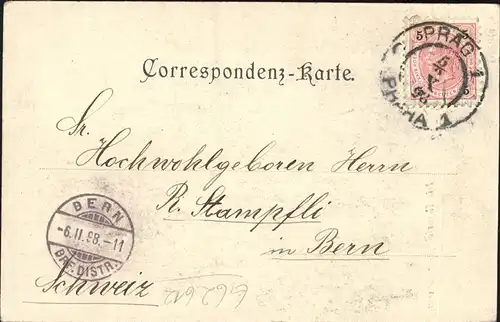 PRAG 1
PRAHA 1
Correspondenz-Karte.
Sr.
Hochwohlgeboren Herrn
R. Stampfli
in Bern
Schweiz
BERN
-6.II.98.-11
BRF.DISTR.